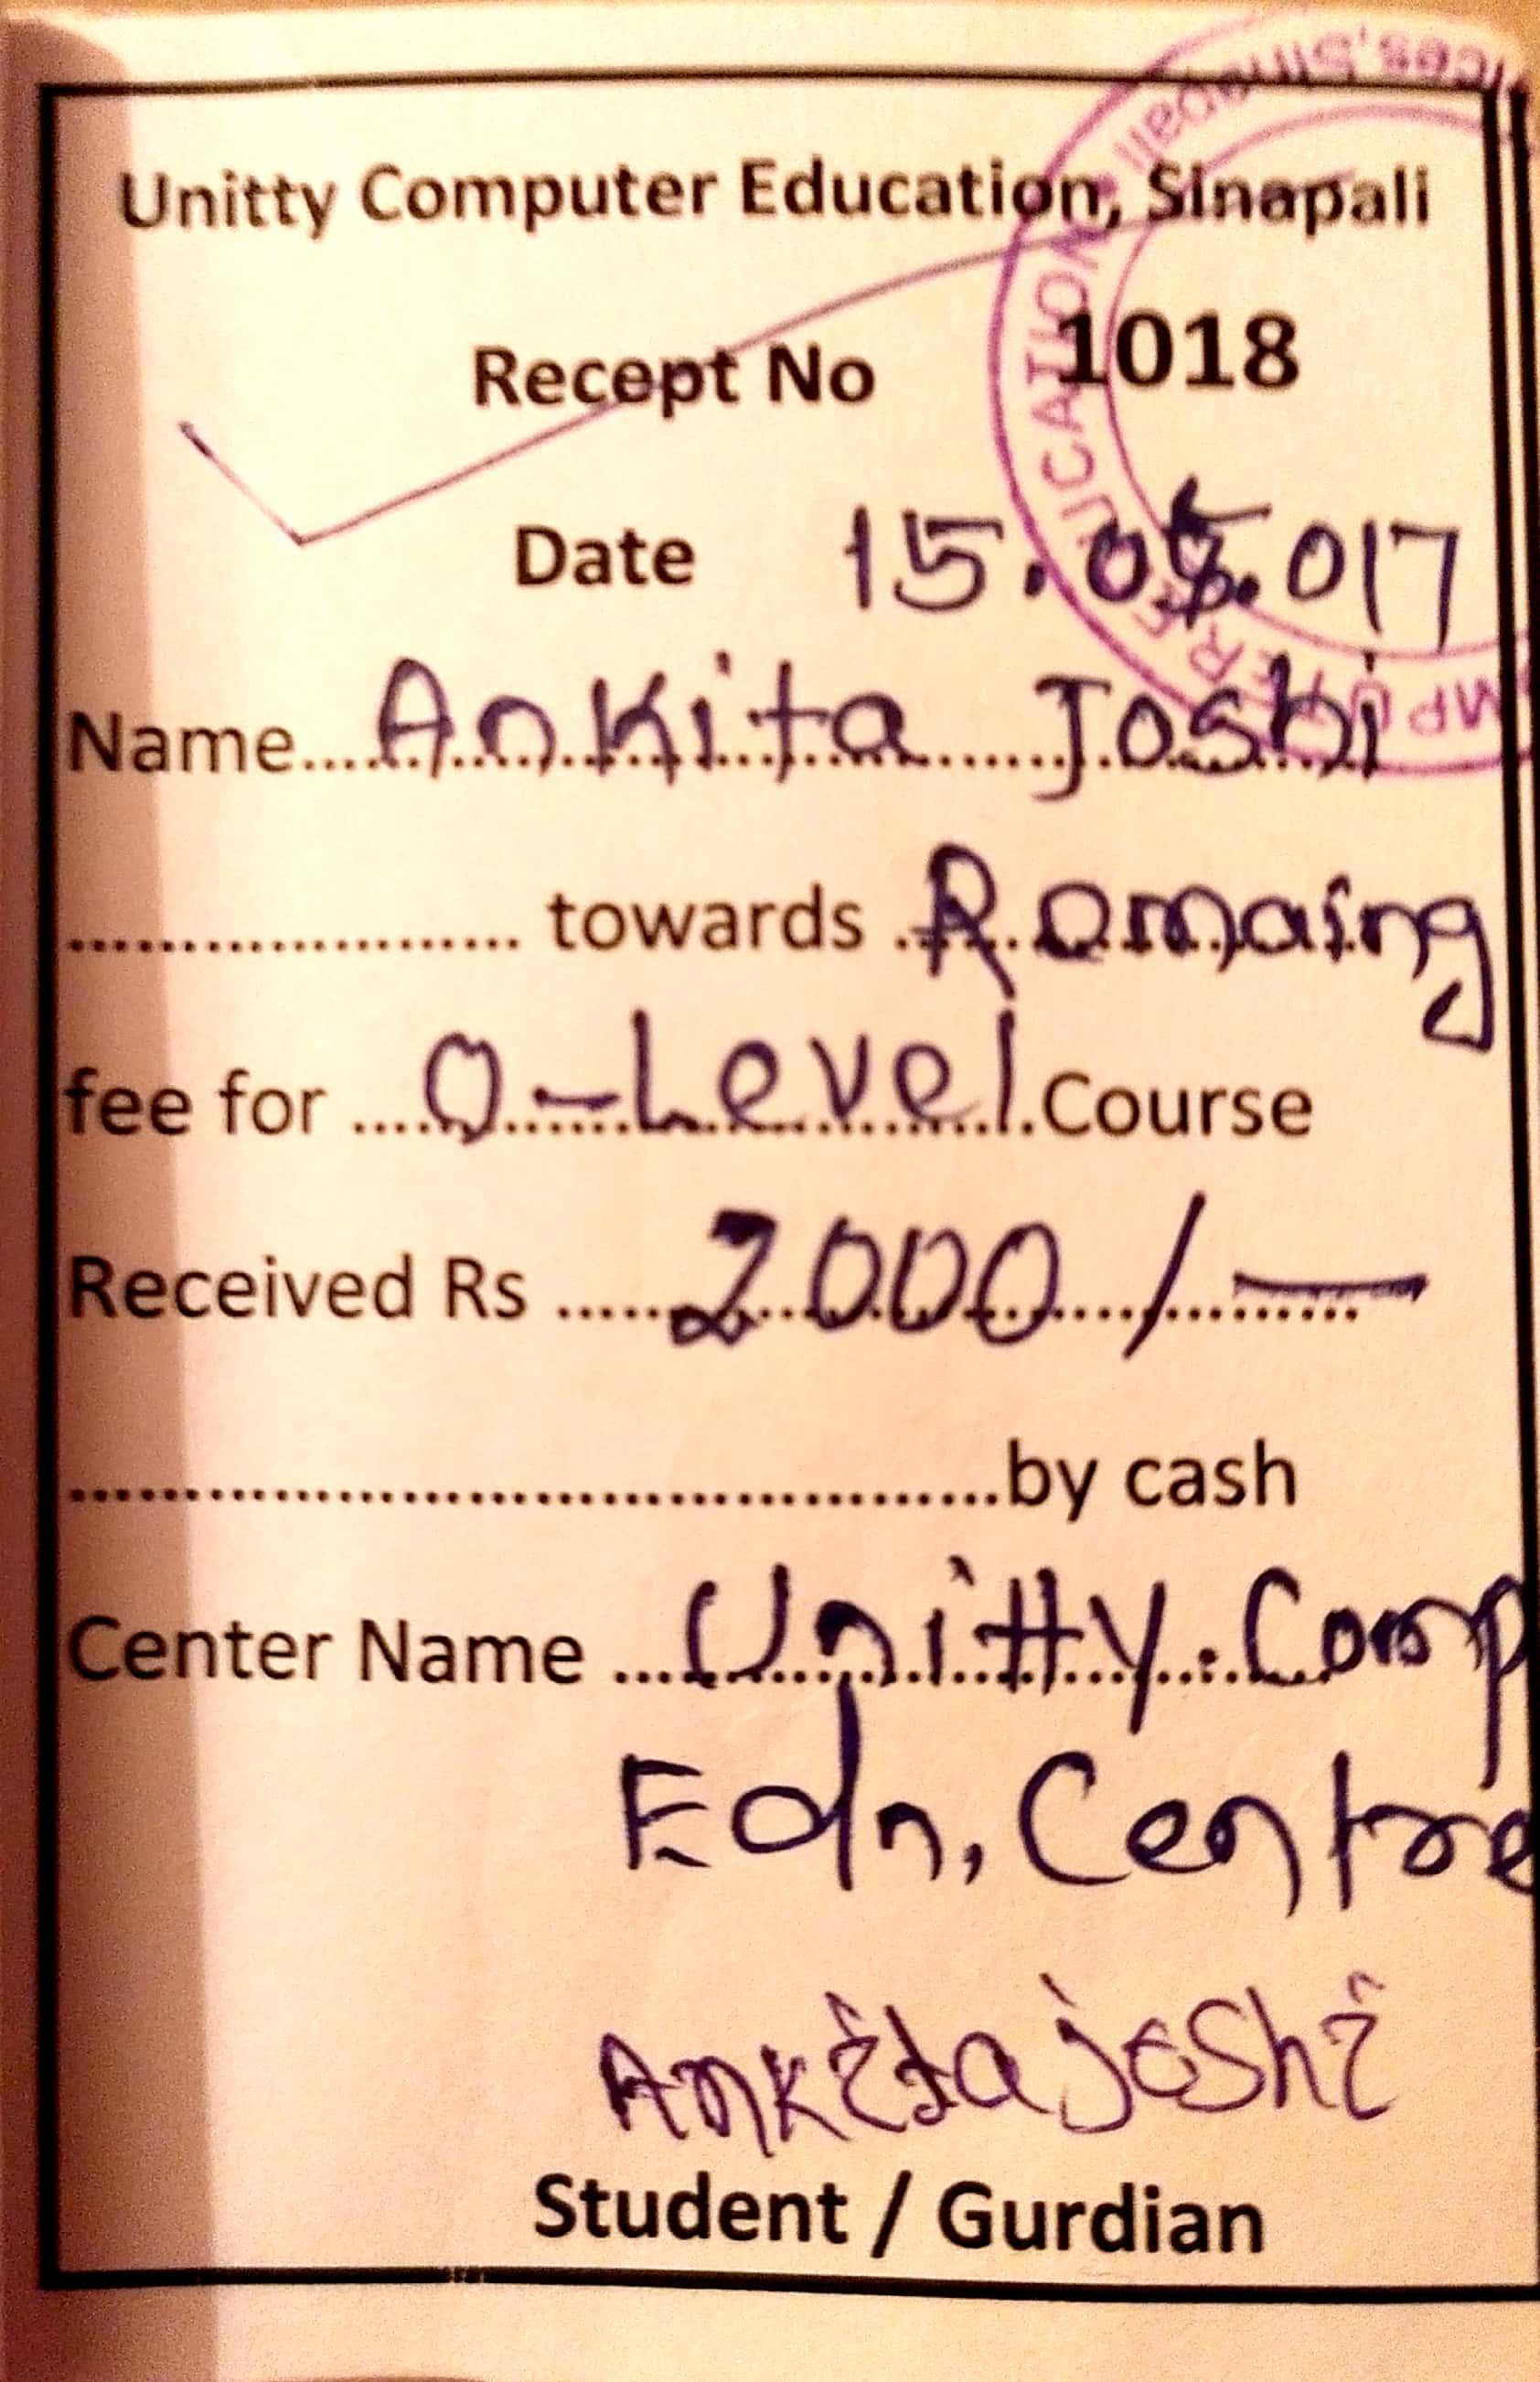 Unitty Computer Education, Sinapali
Recept No 1018
Date 15.05.017
Name....Ankita Joshi
.................... towards Remaing
fee for ....O-Level.Course
Received Rs .....2000/-
........................................by cash
Center Name ...Unitty.Comp
Edn, Centre
Ankita joshi
Student / Gurdian
ices, Sinapali
MPUTER EDUCATION